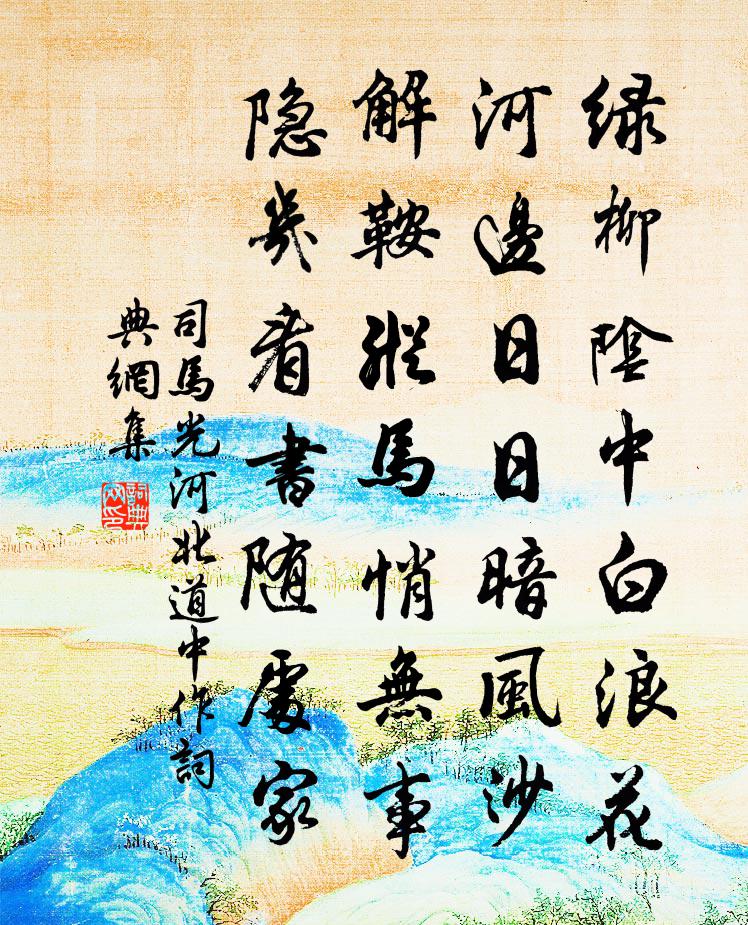 绿柳陰中白浪花
河邊日日暗風沙
解鞍縱馬悄無事
隐幾看書随處家
司馬光河北道中作詞
典網集
詞典